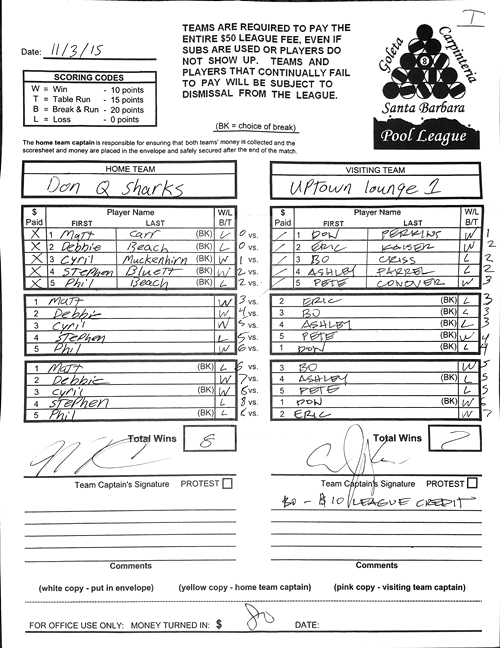 I
Date: 11/3/15
TEAMS ARE REQUIRED TO PAY THE
ENTIRE $50 LEAGUE FEE, EVEN IF
SUBS ARE USED OR PLAYERS DO
NOT SHOW UP. TEAMS AND
PLAYERS THAT CONTINUALLY FAIL
TO PAY WILL BE SUBJECT TO
DISMISSAL FROM THE LEAGUE.
(BK = choice of break)
SCORING CODES
W = Win - 10 points
T = Table Run - 15 points
B = Break & Run - 20 points
L = Loss - 0 points
Goleta
Carpinteria
8
Santa Barbara
Pool League
The home team captain is responsible for ensuring that both teams' money is collected and the
scoresheet and money are placed in the envelope and safely secured after the end of the match.
HOME TEAM VISITING TEAM
Don Q Sharks UPTOWN LOUNGE 1
$ Player Name W/L $ Player Name W/L
Paid FIRST LAST B/T Paid FIRST LAST B/T
X 1 Matt Carr (BK) L 0 vs. / 1 DON PERKINS W 1
X 2 Debbie Beach (BK) L 0 vs. / 2 ERIC KAISER W 2
X 3 Cyril Muckenhirn (BK) W 1 vs. / 3 BO CRISS L 2
X 4 Stephen Bluett (BK) W 2 vs. / 4 ASHLEY FARREL L 2
X 5 Phil Beach (BK) L 2 vs. / 5 PETE CONOVER W 3
1 Matt W 3 vs. 2 ERIC (BK) L 3
2 Debbie W 4 vs. 3 BO (BK) L 3
3 Cyril W 5 vs. 4 ASHLEY (BK) L 3
4 Stephen L 5 vs. 5 PETE (BK) W 4
5 Phil W 6 vs. 1 DON (BK) L 4
1 Matt (BK) L 6 vs. 3 BO W 5
2 Debbie W 7 vs. 4 ASHLEY (BK) L 5
3 Cyril (BK) W 8 vs. 5 PETE L 5
4 Stephen L 8 vs. 1 DON (BK) W 6
5 Phil (BK) L 8 vs. 2 ERIC W 7
Total Wins 8 Total Wins 7
Team Captain's Signature PROTEST Team Captain's Signature PROTEST
BO - $10 LEAGUE CREDIT
Comments Comments
(white copy - put in envelope) (yellow copy - home team captain) (pink copy - visiting team captain)
FOR OFFICE USE ONLY: MONEY TURNED IN: $ DATE: